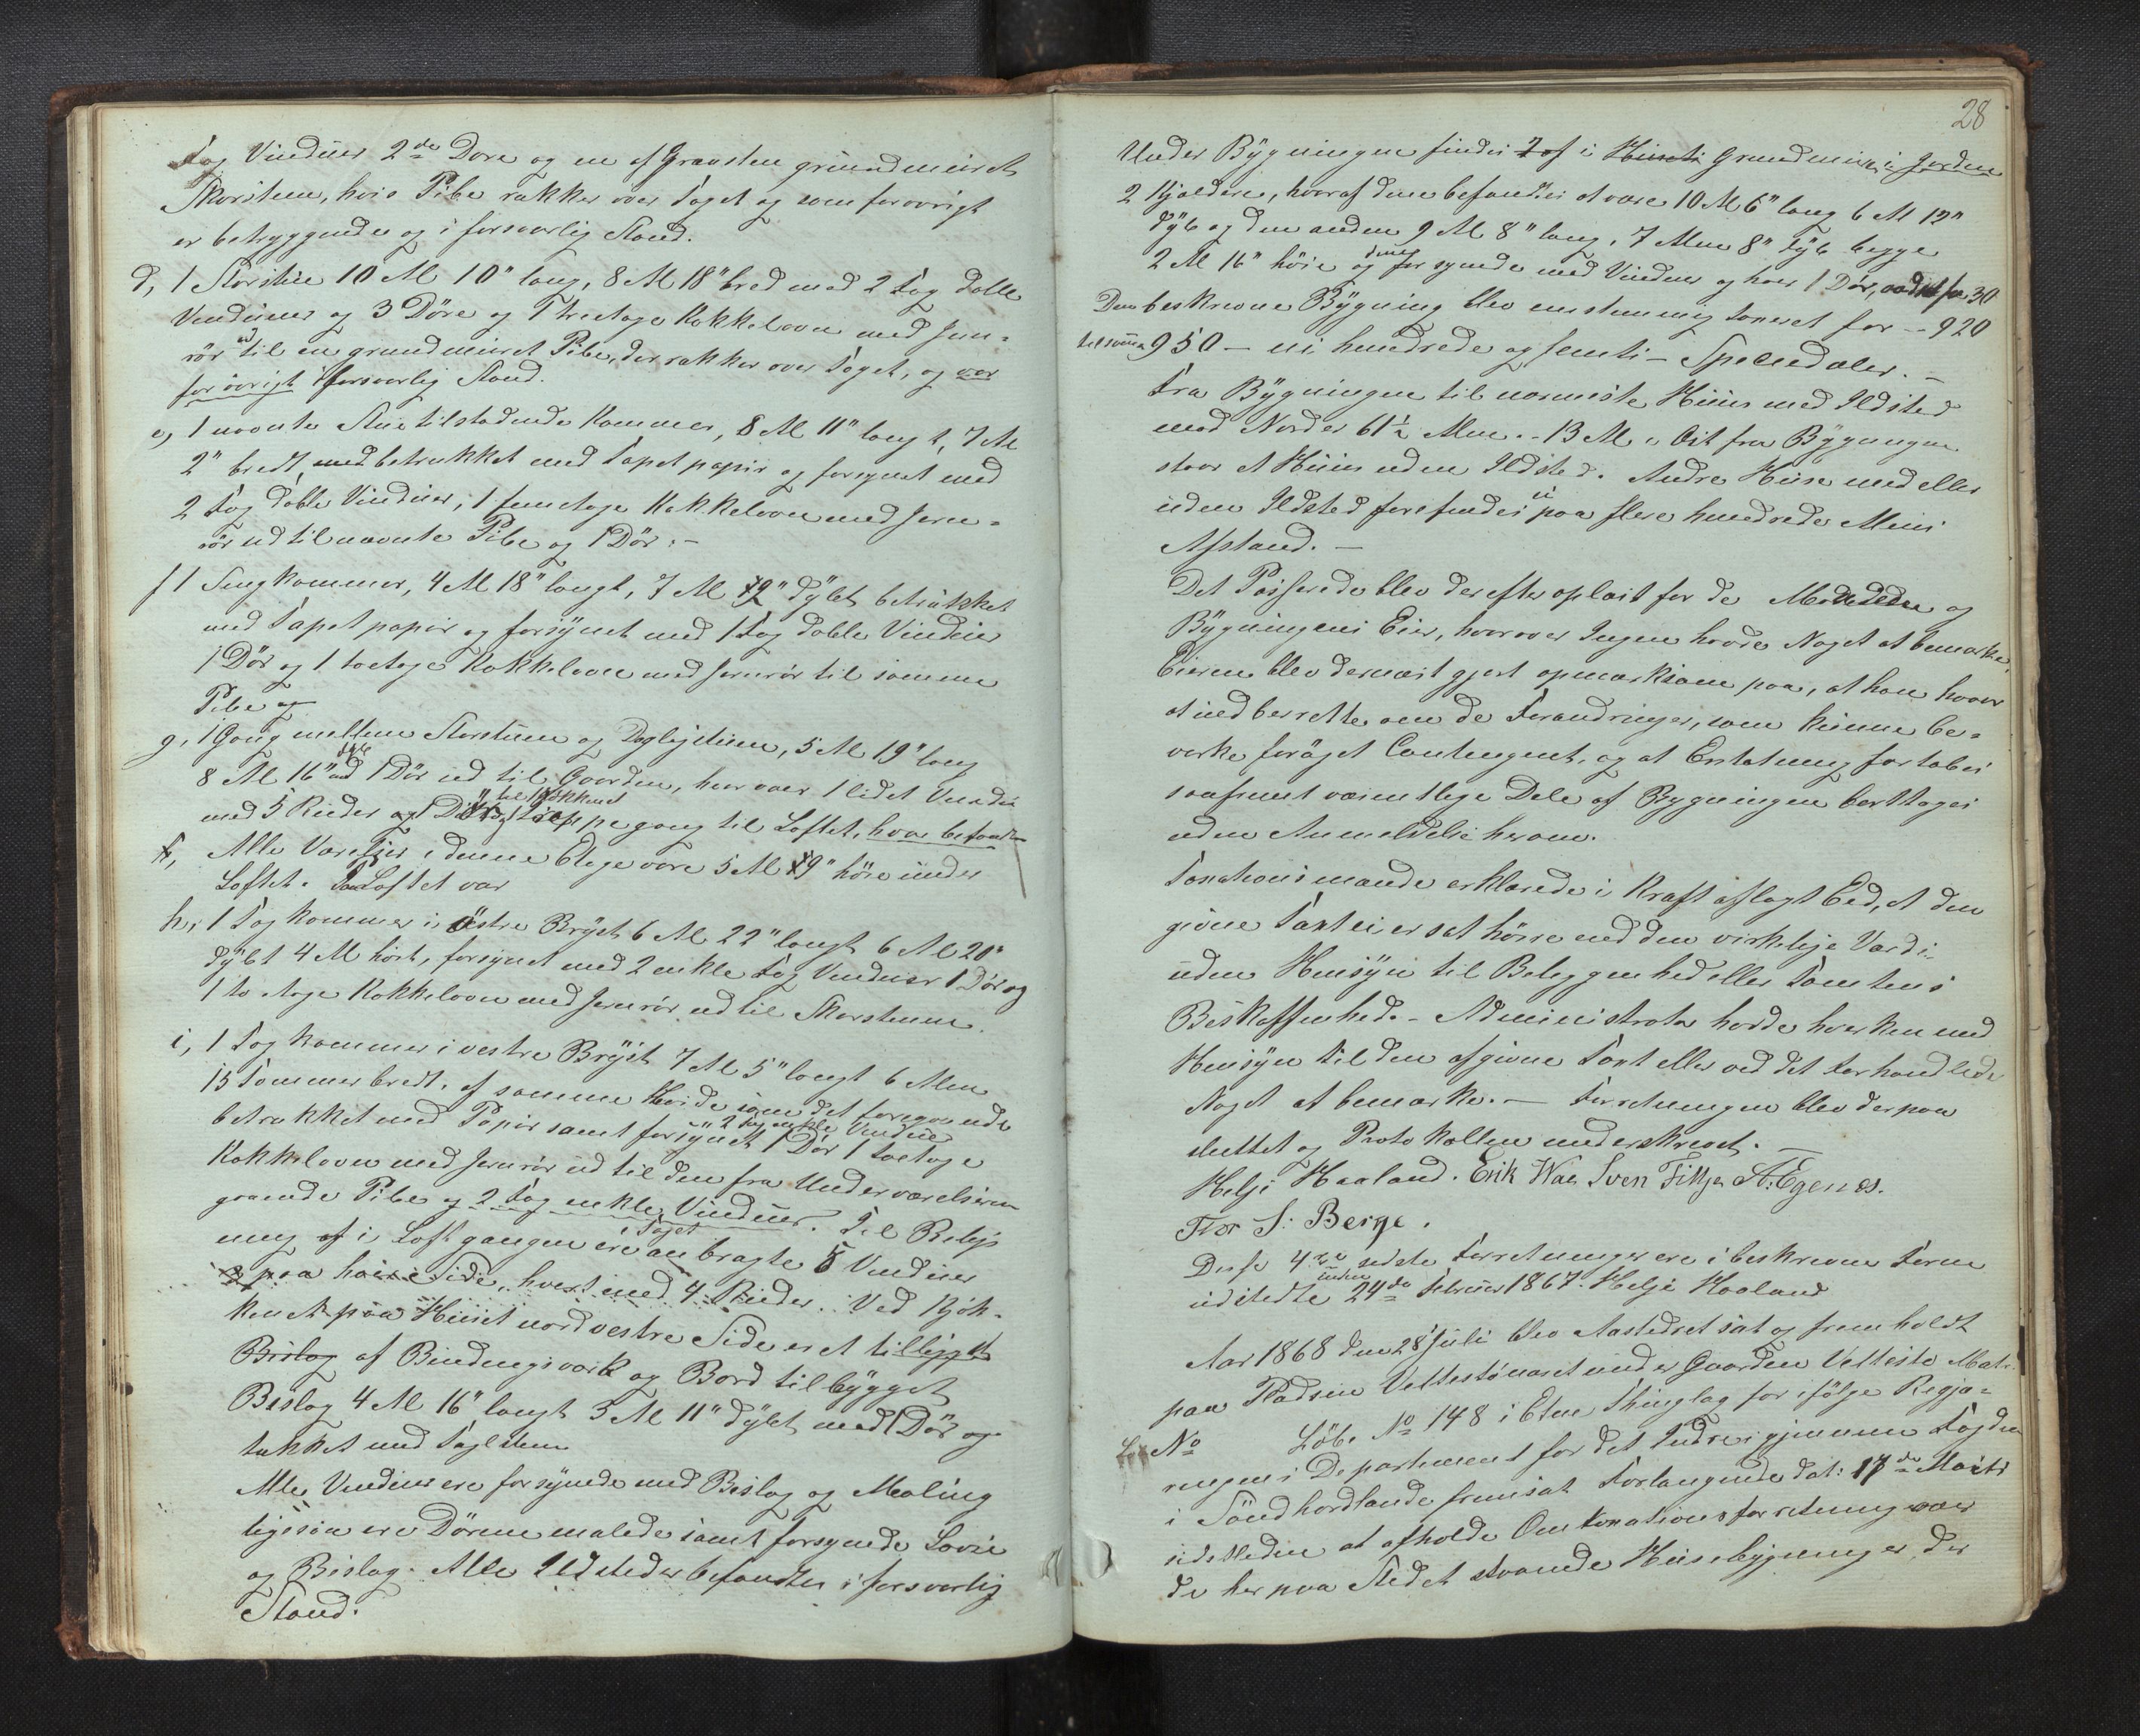 Fag Vinduer 2de Dore og en af Graasten grundmuret
Skorsten, hvis Pibe rækker over Taget og som forovrigt
er betryggende og i forsvarlig Stand.
d, 1 Storstue 10 Al 10" lang, 8 Al 18" bred med 2 Fag doble
Vinduer og 3 Döre og 1 treetages Kakkelovn med Jern-
rör ud til en grundmuret Pibe, der rækker over Taget, og var
forövrigt i forsvarlig Stand.
e, 1 nævnte Stue tilstødende Kammer, 8 Al 11" langt, 7 Al
2" bredt, med betrukket med Tapetpapir og forsynet med
2 Fag doble Vinduer, 1 femetages Kakkelovn med Jern-
rör ud til nævnte Pibe og 1 Dör. -
f 1 Sengkammer, 4 Al 18" langt, 7 Al 19" dÿbt betrukket
med Tapetpapir og forsÿnet med 1 Fag doble Vinduer
1 Dör og 1 toetages Kakkelovn med Jernrör til samme
Pibe og
g, 1 Gang mellem Storstuen og Dagligstuen, 5 Al 19" lang
8 Al 16" dyb 1 Dör ud til Gaarden, hvorover 1 lidet Vindue
med 5 Ruder og 1 Dör til Kjökkenet Trappegang til Loftet, hvor befandtes
Alle Værelser i denne Etage vare 5 Al 19" höie under
Loftet. Paa Loftet var
h, 1 Fag kammer i östre Brÿst 6 Al 22" langt 6 Al 20"
dÿbt 4 Al höit, forsynet med 2 enkle Fag Vinduer 1 Dör og
1 to etages Kakkelovn med Jernrör ud til Skorstenen.
i, 1 Fag kammer i vestre Brÿst 7 Al 5" langt 6 Alen
15 Tommer bredt, af samme Höide som det foregaaende
betrukket med Papir samt forsÿnet 2 Fag enkle Vinduer 1 Dör 1 toetages
Kakkelovn med Jernrör ud til den fra Underværelserne
gaaende Pibe og 2 Fag enkle Vinduer. Til Belys
ning af i Loftgangen ere i Taget anbragte 5 Vinduer
3 paa hver Side, hvert med 4 Ruder. Ved Kjök-
kenet paa Huset nordvestre Side er et tilbygget
Bislag af Bindingsværk og Bord tilbÿgget
Bislag 4 Al 16" langt 3 Al 11" dÿbt med 1 Dör og
tækket med Taglsten
Alle Vinduer ere forsÿnede med Beslag og Maling
ligesom ere Dörene malede samt forsynede Laase
og Beslag. Alle Ildsteder befandtes i forsvarlig
Stand.
28
Under Bÿgningen findes 2 af i Huset i Grundmuren i Jorden
2 Kjeldere, hvoraf den ene befandtes at være 10 Al 6" lang 6 Al 12"
dÿb og den anden 9 Al 8" lang, 7 Alen 8" dÿb begge
2 Al 16" höie og disse forsynede med Vinduer og hver 1 Dör, værdsat for 30
Den beskrevne Bÿgning blev enstemmig taxeret for -- 920
tilsamen 950 - ni hundrede og femti - Speciedaler. -
Fra Bÿgningen til nærmeste Huus med Ildsted
mod Nord er 61½ Alen. - 13 Al i Öst fra Bÿgningen
staar et Huus uden Ildsted. Andre Huse med eller
uden Ildsted forefindes ei paa flere hundrede Alens
Afstand. -
Det Passerede blev derefter oplæst for de Mödende og
Bÿgningens Eier, hvorover Ingen havde Noget at bemærke.
Eieren blev dernæst gjort opmærksom paa, at han haver
at indberette om de Forandringer, som kunne be-
virke forøget Contingent, og at Erstatning fortabes
saafremt væsentlige Dele af Bygningen borttages
uden Anmeldelse herom.
Taxationsmændene erklærede i Kraft aflagt Eed, at den
givne Taxt ei er sat höiere end den virkelige Værdi
uden Hensÿn til Beliggenhed eller Tomtens
Beskaffenhed. - Administrator havde hverken med
Hensÿn til den afgivne Taxt eller ved det Forhandlede
Noget at bemærke. - Forretningen blev derpaa
sluttet og Protokollen underskrevet. -
Helje Haaland. Erik Wae Sven Fittje A: Egenes.
Tor S: Berge.
Disse 4re sidste Forretninger ere i beskreven Form
udstedte inden 24de Februar 1867. Helje Haaland
Aar 1868 den 28 Juli blev Aastedret sat og fremholdt
paa Pladsen Veltestönæset under Gaarden Velteste Matr.
No Löb. No 148 i Etne Thinglag for ifölge Regje-
ringens Departement for det Indre igjennem Fogden
i Söndhordland fremsat Forlangende dat: 17de Marts
sidstleden at afholde Omtaxationsforretning over
de her paa Stedet staaende Husebÿgninger, der